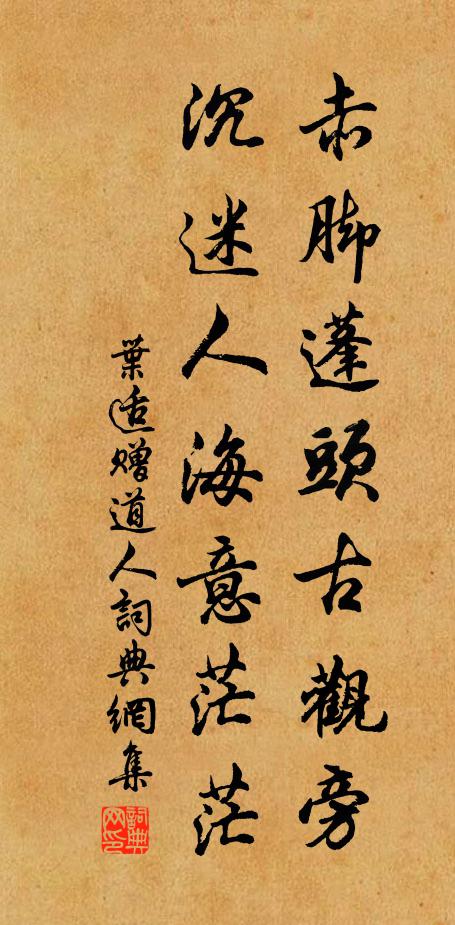 赤脚蓬頭古觀旁
沉迷人海意茫茫
葉适贈道人詞典網集
詞典網印